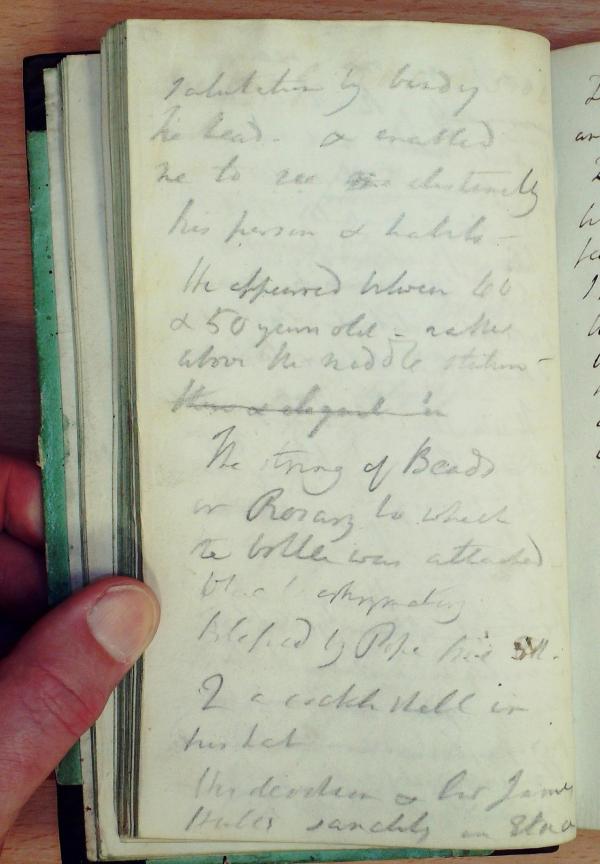 salutation by bending
his head - & enabled
me to see distinctly
his person & habits -
He appeared between 60
& 50 years old - rather
above the middle stature -
The string of Beads
or Rosary to which
the bottle was attached
blessed by Pope Pius
2 a cockle shell in
his hat
His devotion &
sanctity on Etna